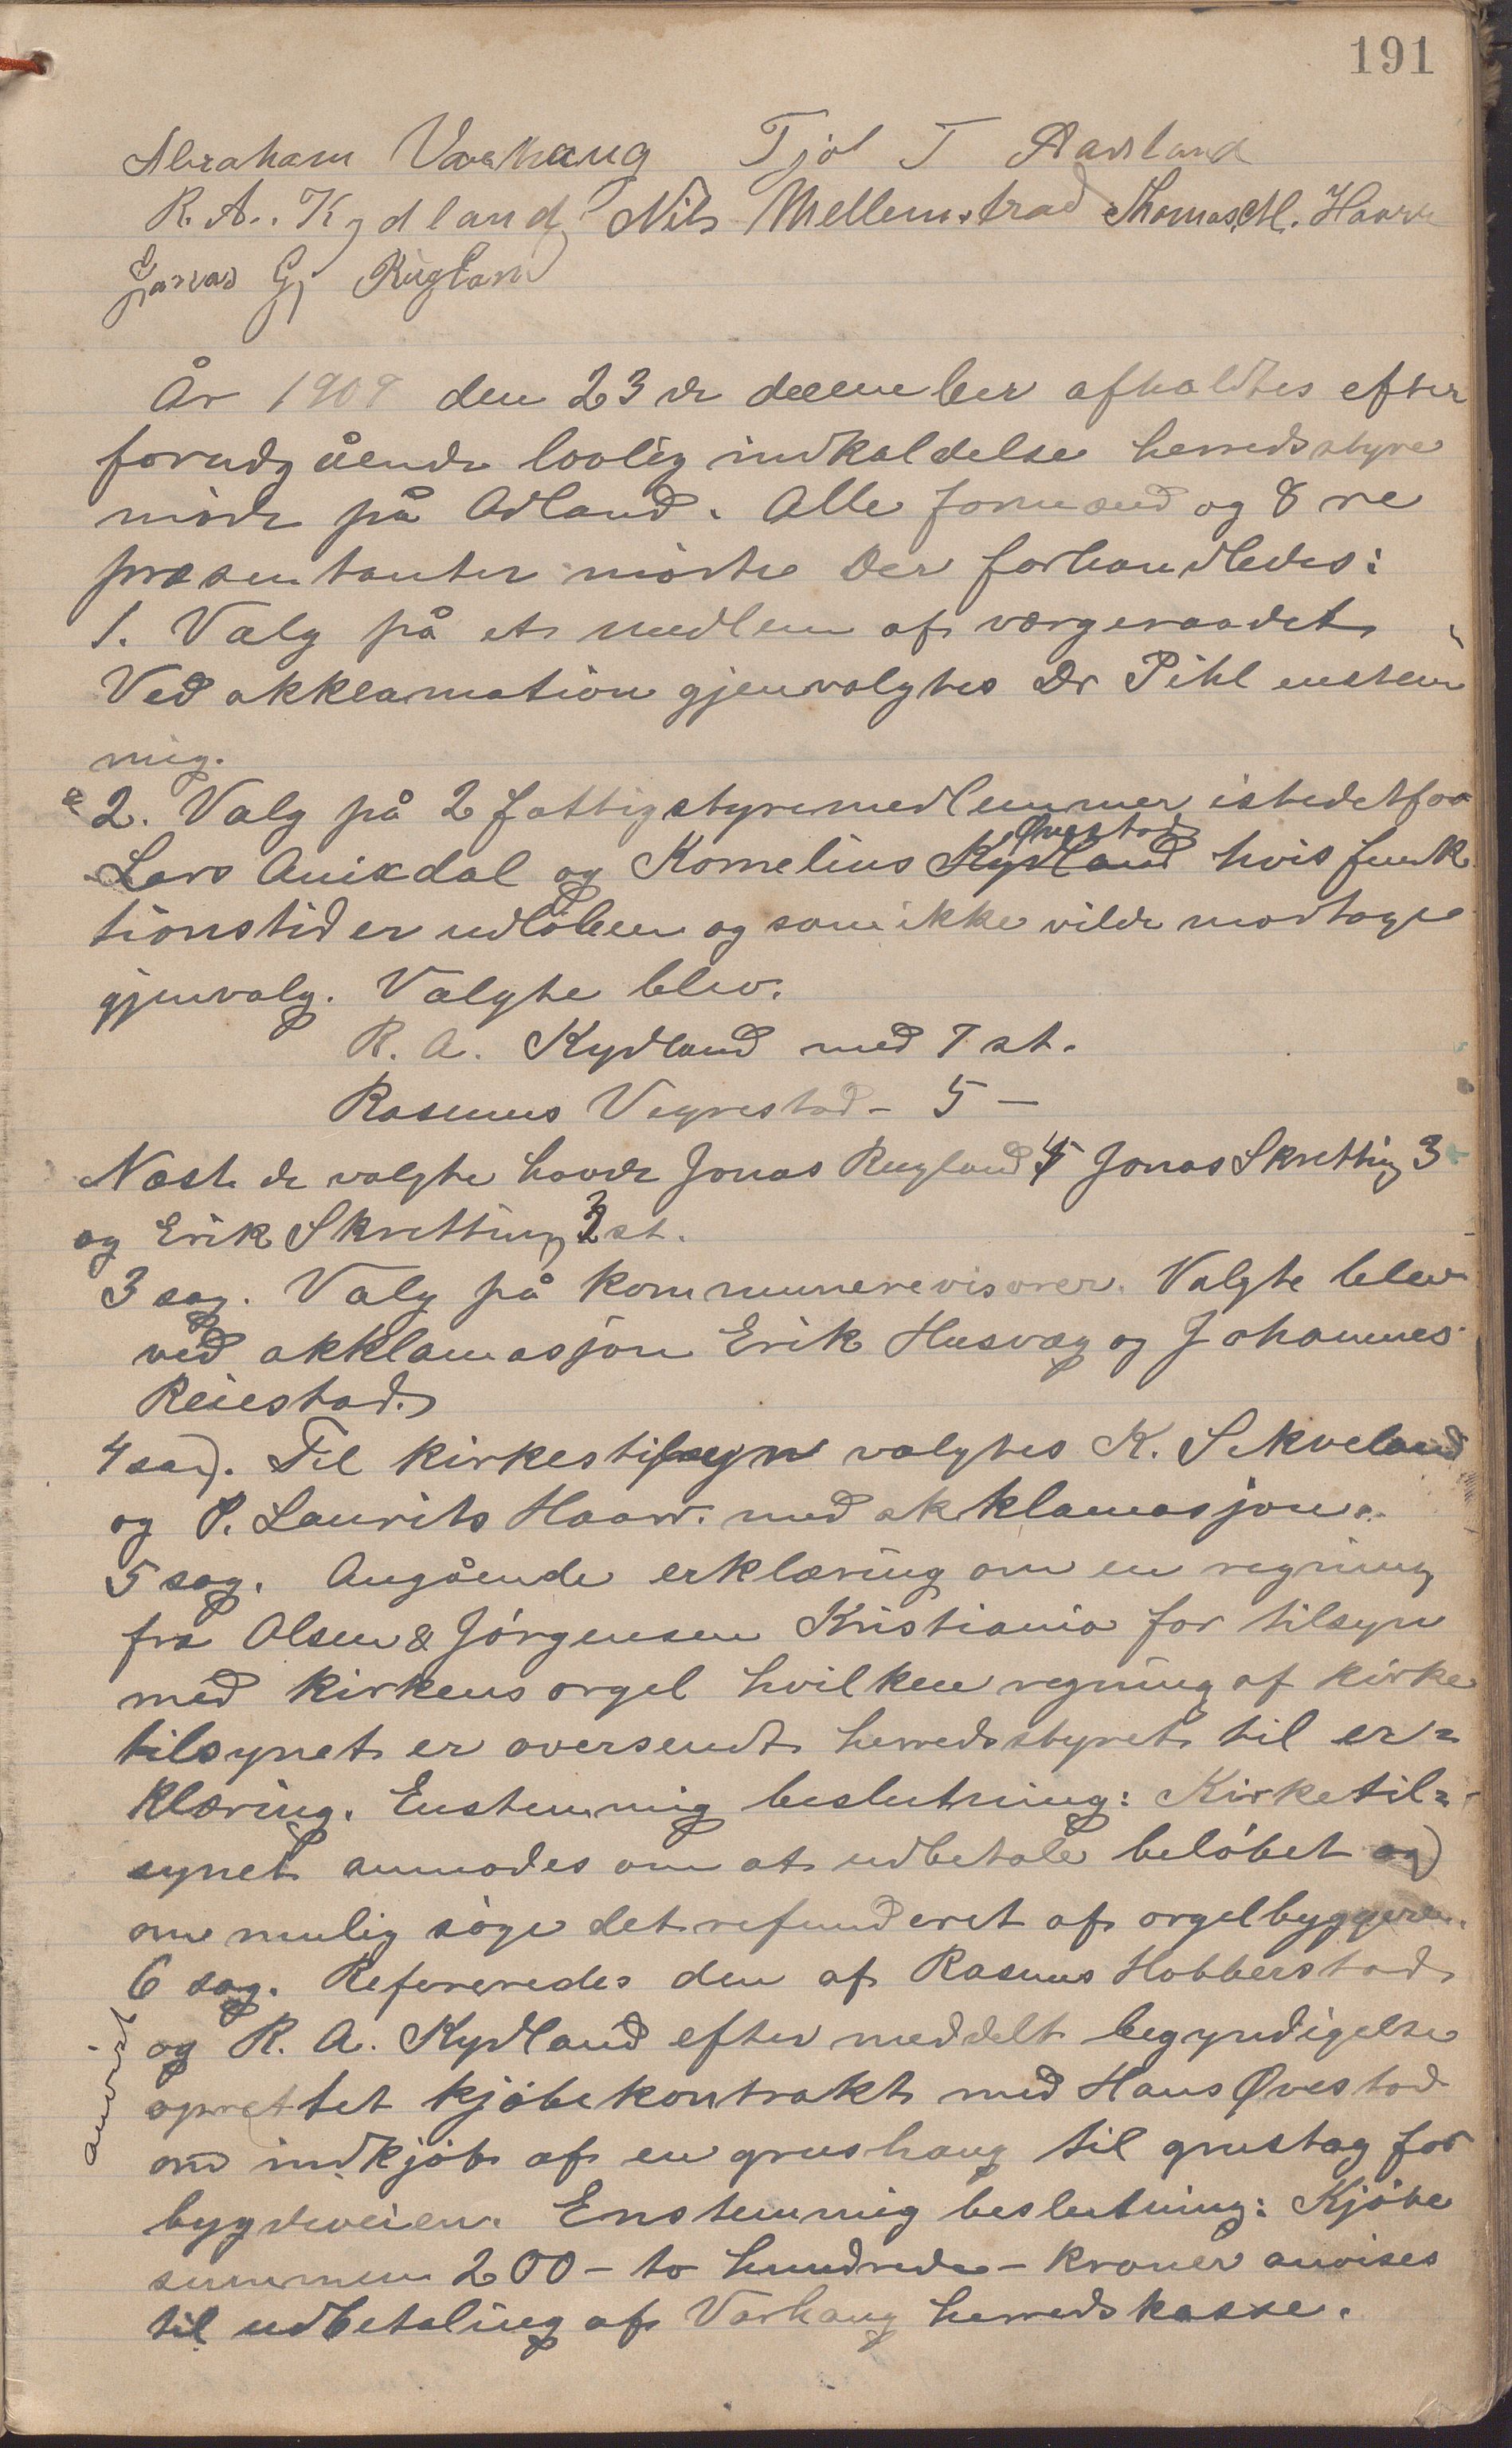 191
Abraham Varhaug Tjøl T Aarsland
R. A. Kydland Nils Mellemstrad Thomas M. Haarr
Jonas Gj Rugland
År 1909 den 23de december afholdtes efter
forudgående lovlig indkaldelse herredsstyre
møde på Odland. Alle formænd og 8 re
præsentanter mødte Der forhandledes:
1. Valg på et medlem af værgeraadet
Ved akklamation gjenvalgtes Dr Pihl enstem
mig.
2. Valg på 2 fattigstyremedlemmer istedetfor
Lars Anikdal og Kornelius Kydland Øvestad hvis funk
tionstid er udløben og som ikke vilde modtage
gjenvalg. Valgte blev.
R. A. Kydland med 7 st.
Rasmus Vegrestad - 5 -
Næst de valgte havde Jonas Rugland 4 Jonas Skretting 3
og Erik Skretting 3 st.
3 sag. Valg på kommunerevisorer. Valgte blev
ved akklamasjon Erik Husvæg og Johannes
Reiestad.
4 sag. Til kirkestilsyn valgtes K. Sikveland
og P. Laurits Haarr. med akklamasjon.
5 sag. Angående erklæring om en regning
fra Olsen & Jørgensen Kristiania for tilsyn
med kirkens orgel hvilken regning af kirke
tilsynet er oversendt herredsstyret til er=
klæring. Enstemmig beslutning: Kirketil=
synet anmodes om at udbetale beløbet og
om mulig søge det refunderet af orgelbyggeren.
6 sag. Refereredes den af Rasmus Hobberstad
og R. A. Kydland efter meddelt begyndigelse
anvist
oprettet kjøbekontrakt med Hans Øvestad
om indkjøb af en grushaug til grustag for
bygdeveien. Enstemmig beslutning: Kjøbe
summen 200 - to hundrede - kroner anvises
til udbetaling af Varhaug herredskasse.